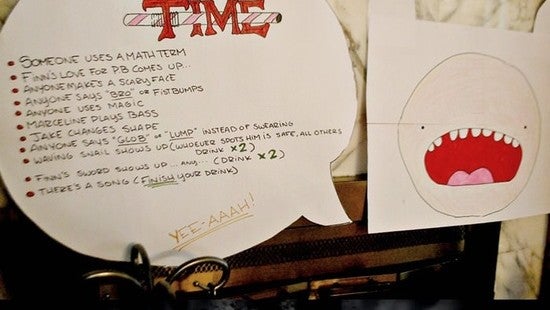 TIME
SOMEONE USES A MATH TERM
FINN'S LOVE FOR P.B COMES UP...
ANYONE MAKES A SCARY FACE
ANYONE SAYS "BRO" OR FISTBUMPS
ANYONE USES MAGIC
MARCELINE PLAYS BASS
JAKE CHANGES SHAPE
ANYONE SAYS "GLOB" OR "LUMP" INSTEAD OF SWEARING
WAVING SNAIL SHOWS UP (WHOEVER SPOTS HIM IS SAFE, ALL OTHERS
DRINK x2)
FINN'S SWORD SHOWS UP... ANY... (DRINK x2)
THERE'S A SONG (FINISH YOUR DRINK)
YEE-AAAH!